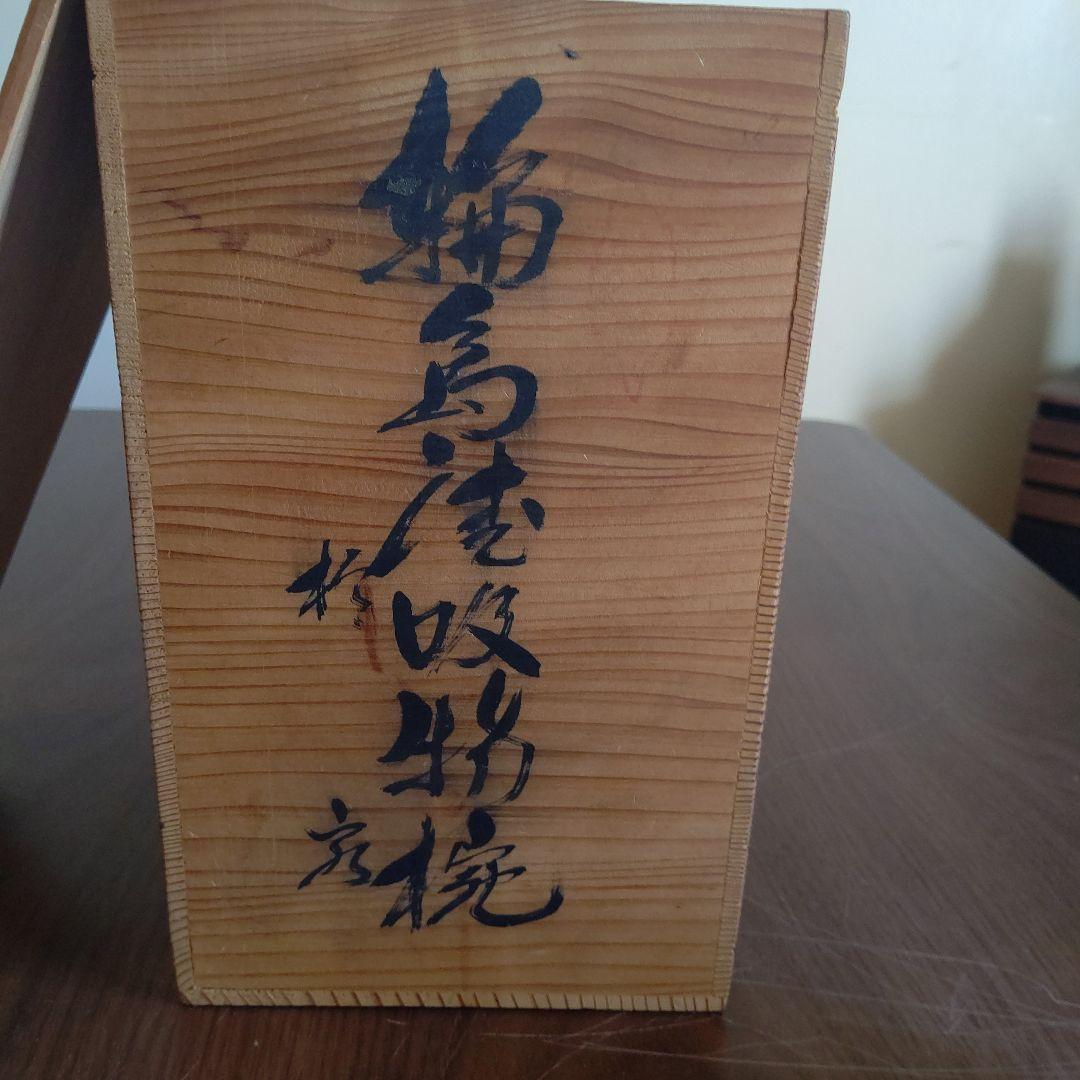 輪島塗吸物椀
拾客